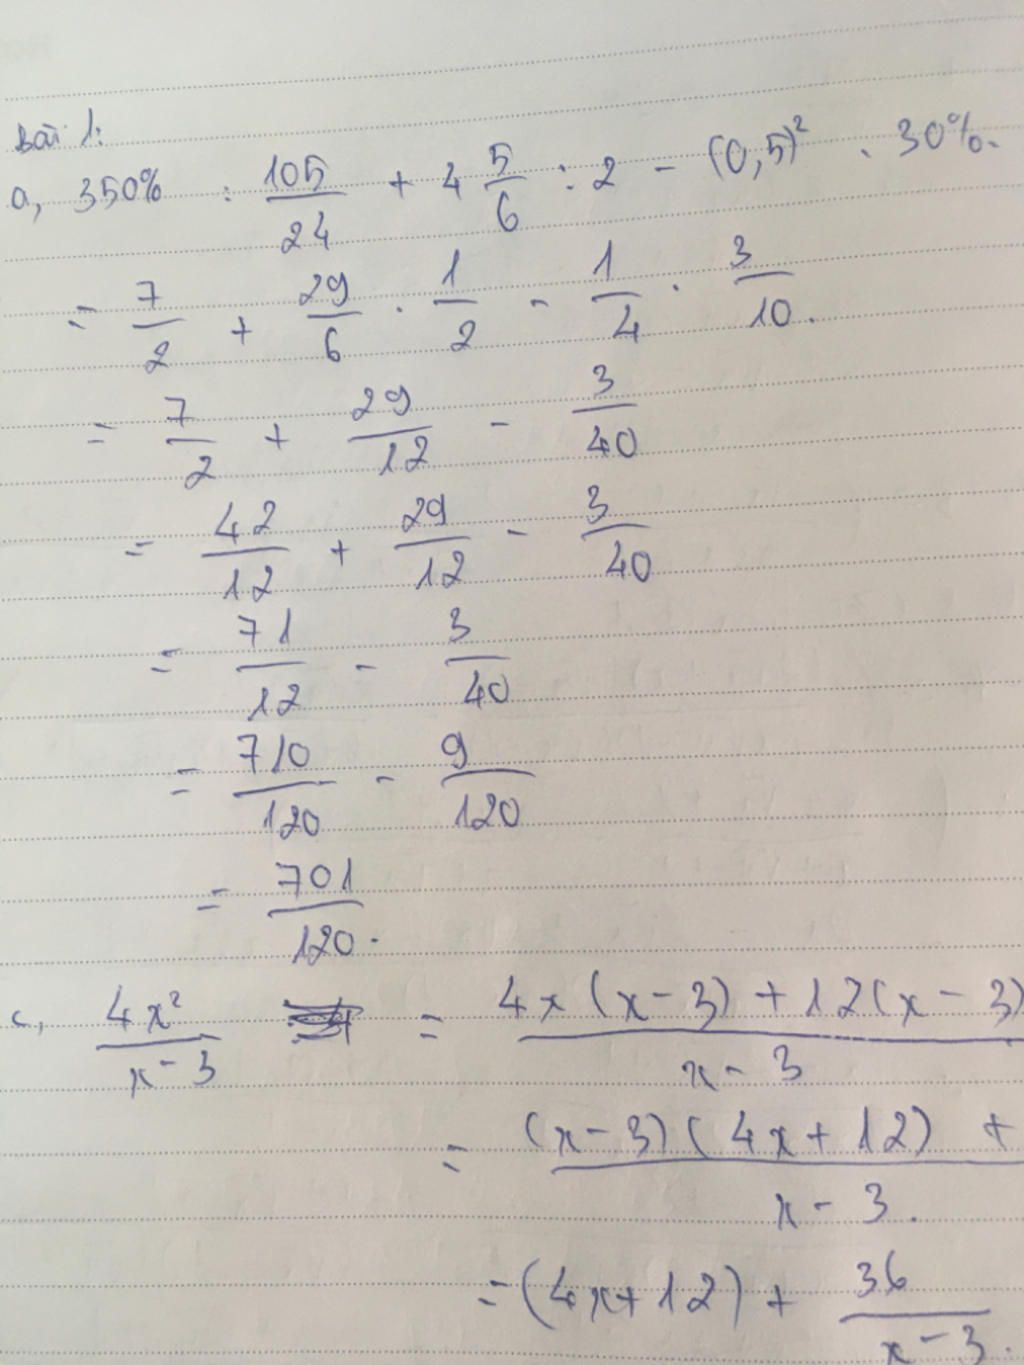 Bài 1:
a, 350% : 105/24 + 4 5/6 : 2 - (0,5)² . 30%.
= 7/2 + 29/6 . 1/2 - 1/4 . 3/10.
= 7/2 + 29/12 - 3/40
= 42/12 + 29/12 - 3/40
= 71/12 - 3/40
= 710/120 - 9/120
= 701/120.
c, 4x²/x-3 = 4x(x-3)+12(x-3)/x-3
= (x-3)(4x+12) +/x-3.
= (4x+12) + 36/x-3.